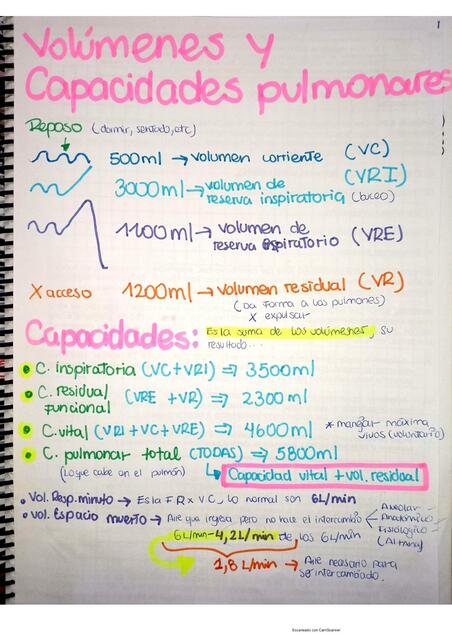 1
Volúmenes y
Capacidades pulmonares
Reposo (dormir, sentado, etc)
500ml → volumen corriente (VC)
3000ml → volumen de
reserva inspiratoria (VRI)
1100ml → volumen de
reserva espiratorio (VRE)
X acceso 1200ml → volumen residual (VR)
(Da forma a los pulmones)
X expulsar
Capacidades: Es la suma de los volúmenes, su
resultado...
• C. inspiratoria (VC+VRI) ⇒ 3500ml
• C. residual
funcional (VRE + VR) ⇒ 2300ml
• C. vital (VRI+VC+VRE) ⇒ 4600ml * manejar máxima
vivos (voluntario)
• C. pulmonar total (TODAS) ⇒ 5800ml
(Lo que cabe en el pulmón) ↳ Capacidad vital + vol. residual
• Vol. Resp. minuto → Es la FR x VC, lo normal son 6L/min
• Vol. Espacio muerto → Aire que ingresa pero no hace el intercambio
Alveolar
Anatómico
Fisiológico
6L/min-4,2L/min de los 6L/min
1,8L/min → Aire necesario para
ser intercambiado.
Escaneado con CamScanner